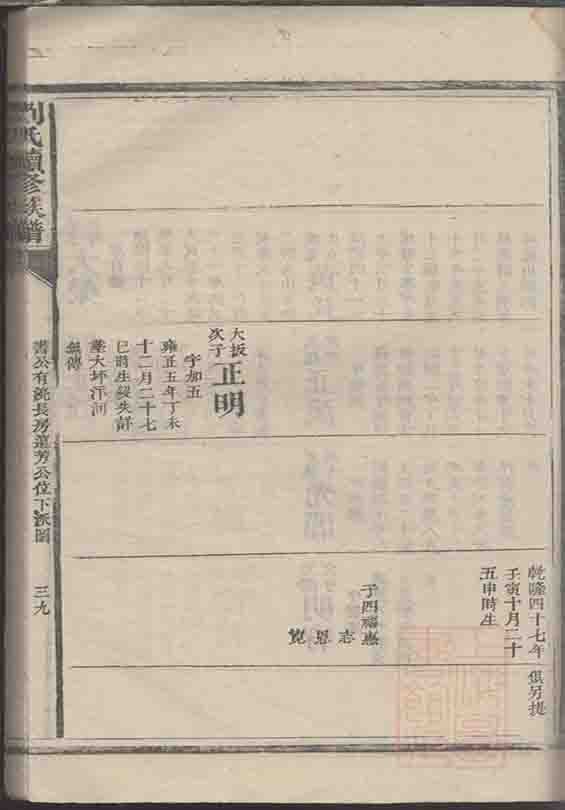 乾隆四十七年
壬寅十月二十
五申時生
俱另提
子四福惠
志
恩
寬
大振
次子
正明
字加五
雍正五年丁未
十二月二十七
巳時生歿失詳
葬大坪洋河
無傳
劉氏續修族譜
書公有流長房蓮芳公位下派圖
三九